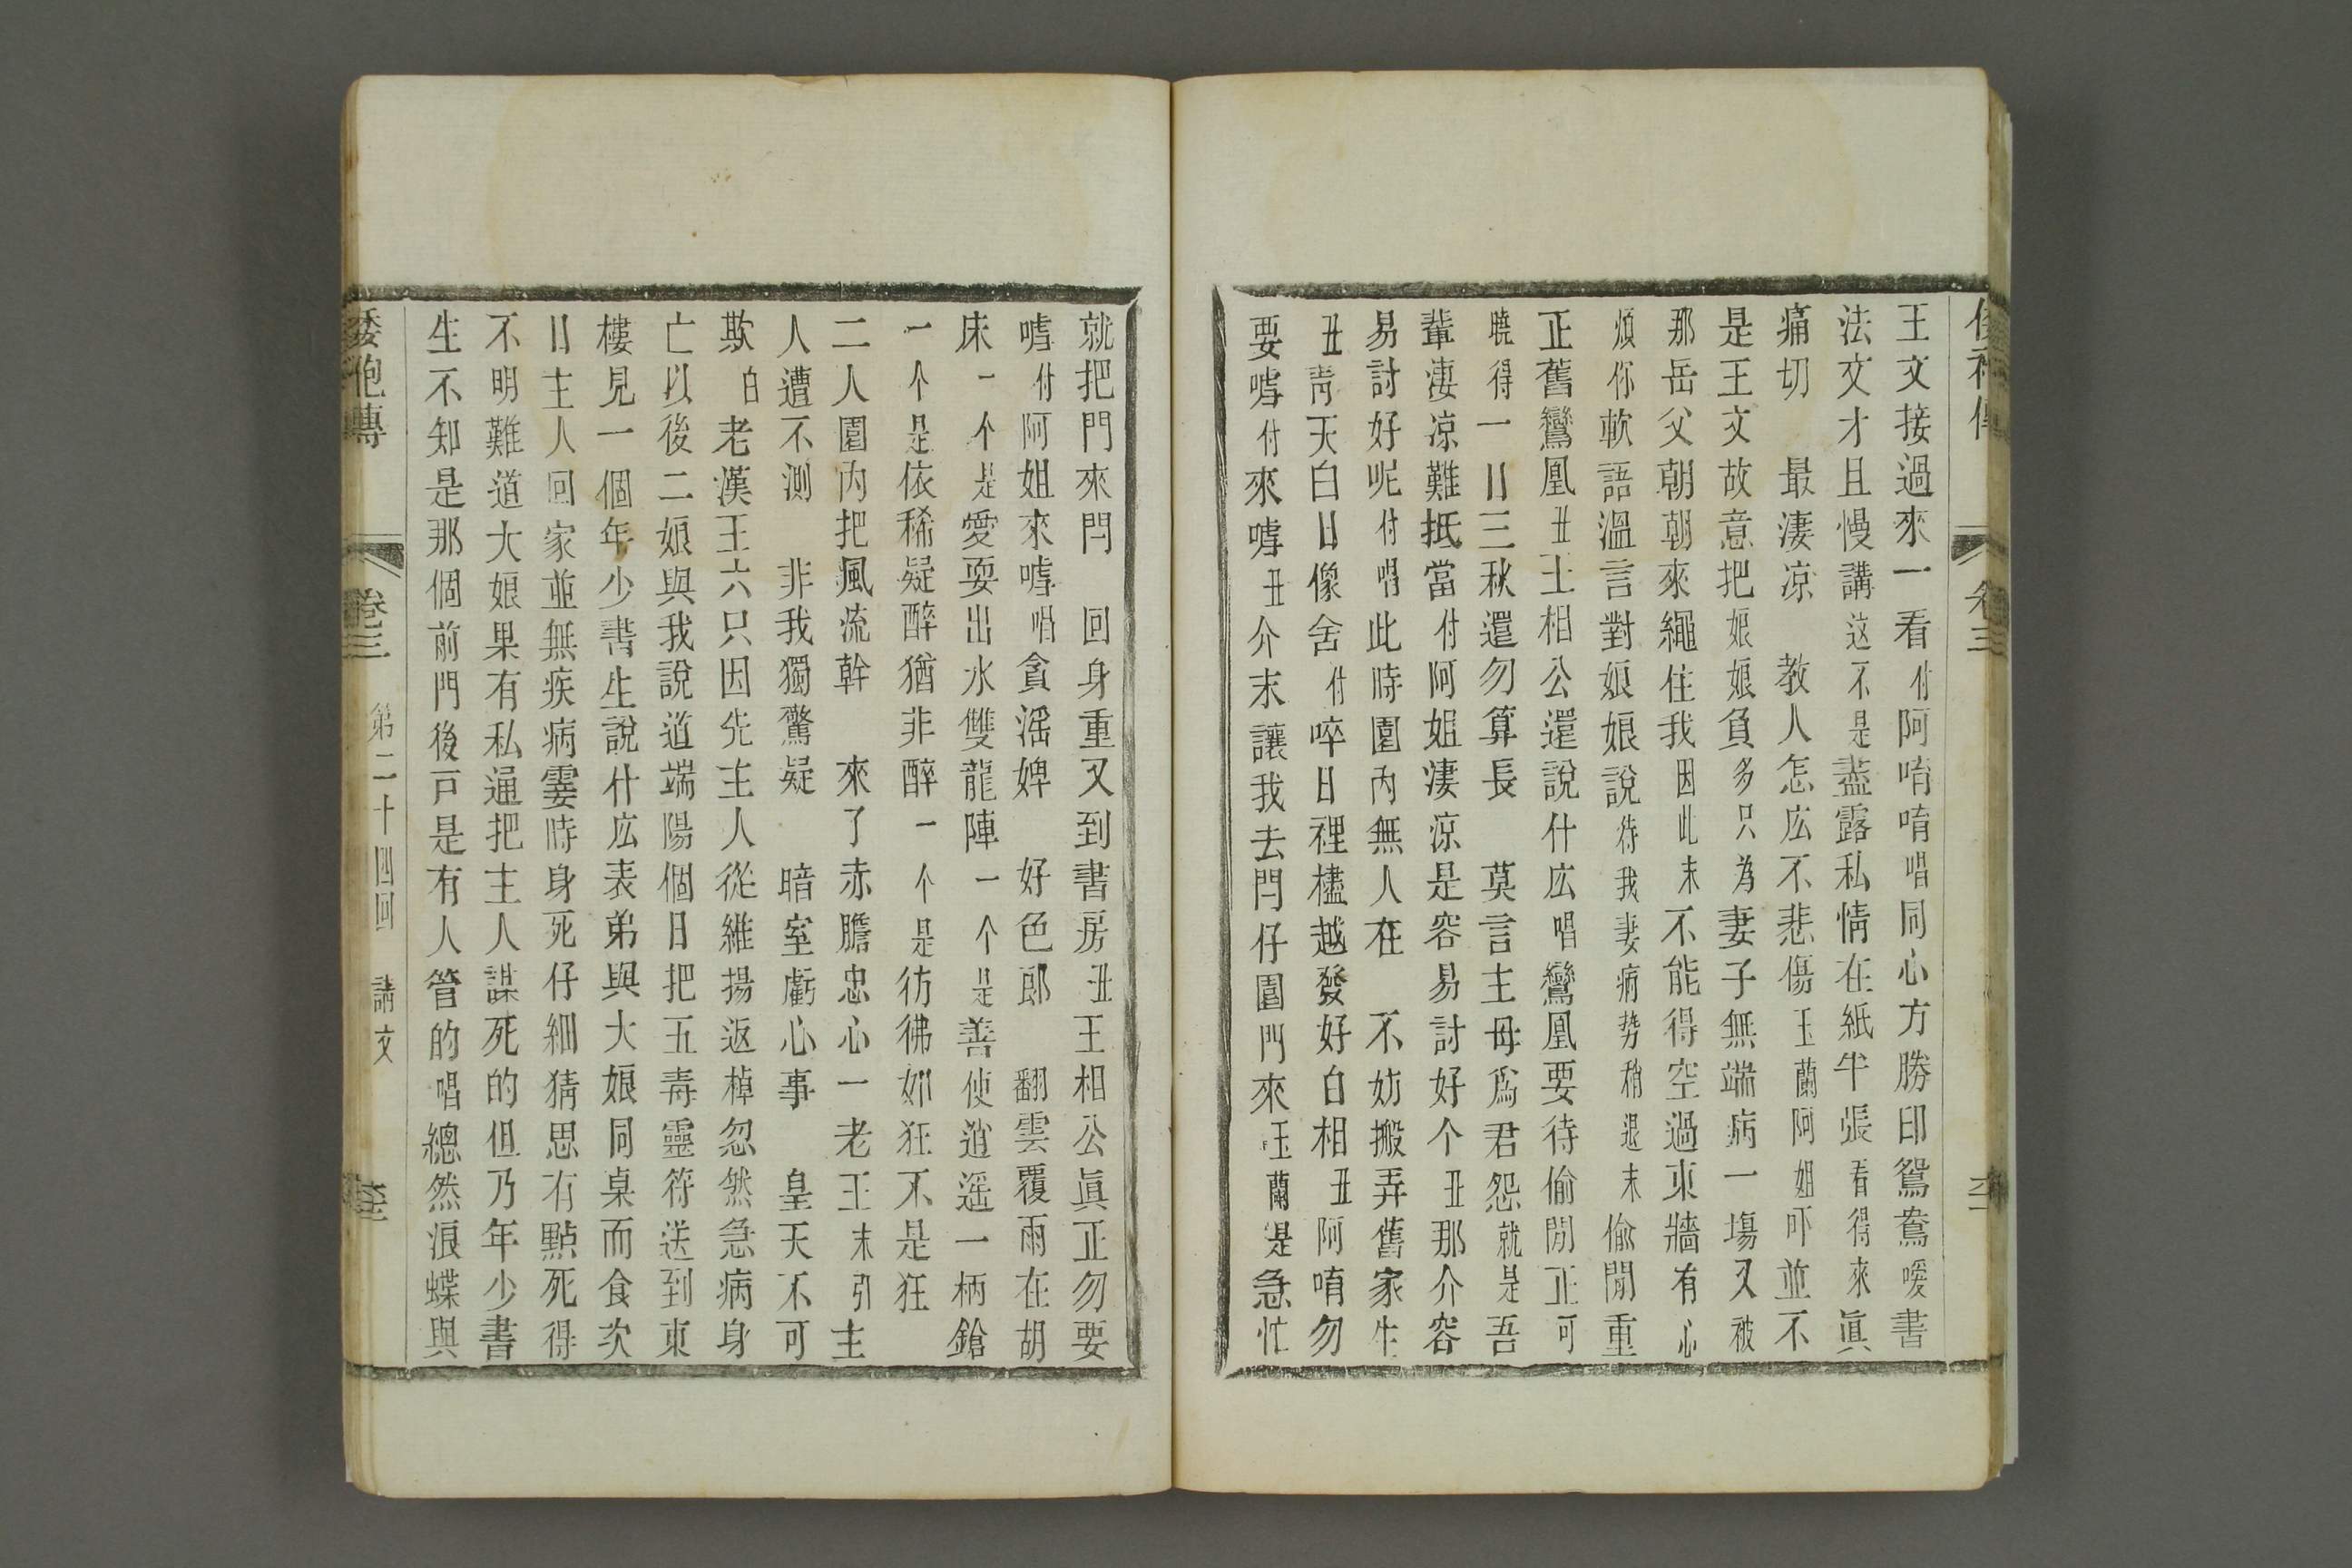 王文接過來一看付阿唷唷唱同心方勝印鴛鴦嗳書
法文才且慢講这不是盡露私情在紙半張看得来眞
痛切　最淒凉　教人怎広不悲傷玉蘭阿姐吓並不
是王文故意把娘娘負多只為妻子無端病一塲又被
那岳父朝朝來繩住我因此末不能得空過東牆有心
煩你軟語溫言對娘娘說待我妻病势稍退末偷閒重
正舊鸞凰丑王相公還說什広唱鸞凰要待偷閒正可
曉得一日三秋還勿算長　莫言主母爲君怨就是吾
輩淒凉難抵當付阿姐淒凉是容易討好个丑那介容
易討好呢付唱此時園內無人在　不妨搬弄舊家生
丑靑天白日像舍付啐日裡橀越發好白相丑阿唷勿
要嘑付來嘑丑介末讓我去閂仔園門來玉蘭是急忙
就把門來閂　回身重又到書房丑王相公眞正勿要
嘑付阿姐來嘑唱貪滛婢　好色郎　翻雲覆雨在胡
床一个是愛耍出水雙龍陣一个是善使逍遥一柄鎗
一个是依稀疑醉猶非醉一个是彷彿如狂不是狂
二人園內把風流幹　來了赤膽忠心一老王末引主
人遭不測　非我獨驚疑　暗室虧心事　皇天不可
欺白老漢王六只因先主人從維揚返棹忽然急病身
亡以後二娘與我說道端陽個日把五毒靈符送到東
樓見一個年少書生說什広表弟與大娘同桌而食次
日主人回家並無疾病霎時身死仔細猜思有點死得
不明難道大娘果有私通把主人謀死的但乃年少書
生不知是那個前門後戸是有人管的唱總然浪蝶與
倭袍傳　卷三　第二十四回　請文